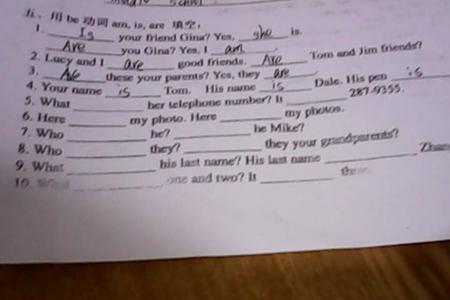 五、用 be 动词 am, is, are 填空。
1. Is your friend Gina? Yes, she is.
Are you Gina? Yes, I am.
2. Lucy and I are good friends. Are Tom and Jim friends?
3. Are these your parents? Yes, they are.
4. Your name is Tom. His name is Dale. His pen is
5. What ______ her telephone number? It ______ 287-9355.
6. Here ______ my photo. Here ______ my photos.
7. Who ______ he? ______ he Mike?
8. Who ______ they? ______ they your grandparents?
9. What ______ his last name? His last name ______ Zhan
10. What ______ one and two? It ______